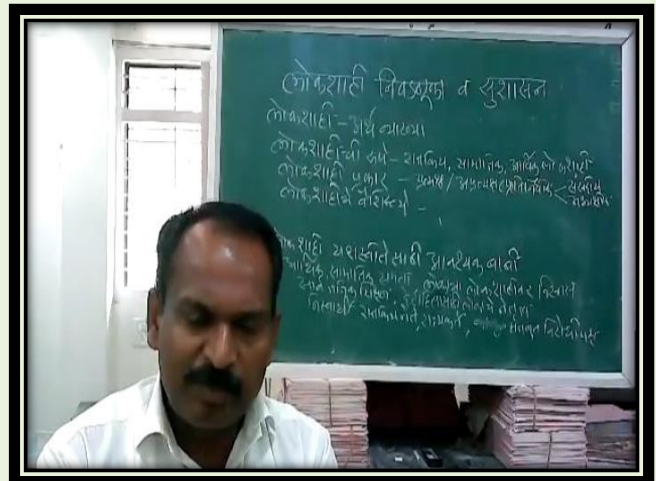 लोकशाही निवडणूका व सुशासन
लोकशाही - अर्थ व्याख्या
लोकशाही-ची रूपे - राजकिय, सामाजिक, आर्थिक लोकशाही
लोकशाही प्रकार - प्रत्यक्ष / अप्रत्यक्ष / प्रातिनिधिक < संसदीय
अध्यक्षीय
लोकशाहीचे वैशिष्ट्ये -
लोकशाही यशस्वीतेसाठी आवश्यक बाबी
आर्थिक, सामाजिक समता लोकशाहीवर विश्वास
निस्वार्थी